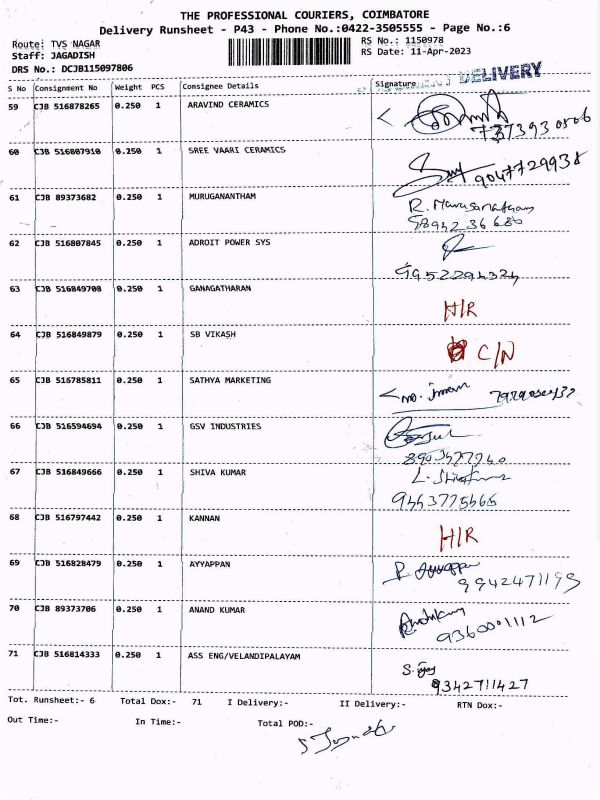 THE PROFESSIONAL COURIERS, COIMBATORE
Delivery Runsheet - P43 - Phone No.:0422-3505555 - Page No.:6
Route: TVS NAGAR RS No.: 1150978
Staff: JAGADISH RS Date: 11-Apr-2023
DRS No.: DCJB115097806
DELIVERY
S No Consignment No Weight PCS Consignee Details Signature
59 CJB 516878265 0.250 1 ARAVIND CERAMICS
60 CJB 516807910 0.250 1 SREE VAARI CERAMICS
9047729938
61 CJB 89373682 0.250 1 MURUGANANTHAM
62 CJB 516807845 0.250 1 ADROIT POWER SYS
63 CJB 516849708 0.250 1 GANAGATHARAN
H/R
64 CJB 516849879 0.250 1 SB VIKASH
C/N
65 CJB 516785811 0.250 1 SATHYA MARKETING
66 CJB 516594694 0.250 1 GSV INDUSTRIES
67 CJB 516849666 0.250 1 SHIVA KUMAR
68 CJB 516797442 0.250 1 KANNAN
H/R
69 CJB 516828479 0.250 1 AYYAPPAN
70 CJB 89373706 0.250 1 ANAND KUMAR
9360001112
71 CJB 516814333 0.250 1 ASS ENG/VELANDIPALAYAM
9342711427
Tot. Runsheet:- 6 Total Dox:- 71 I Delivery:- II Delivery:- RTN Dox:-
Out Time:- In Time:- Total POD:-